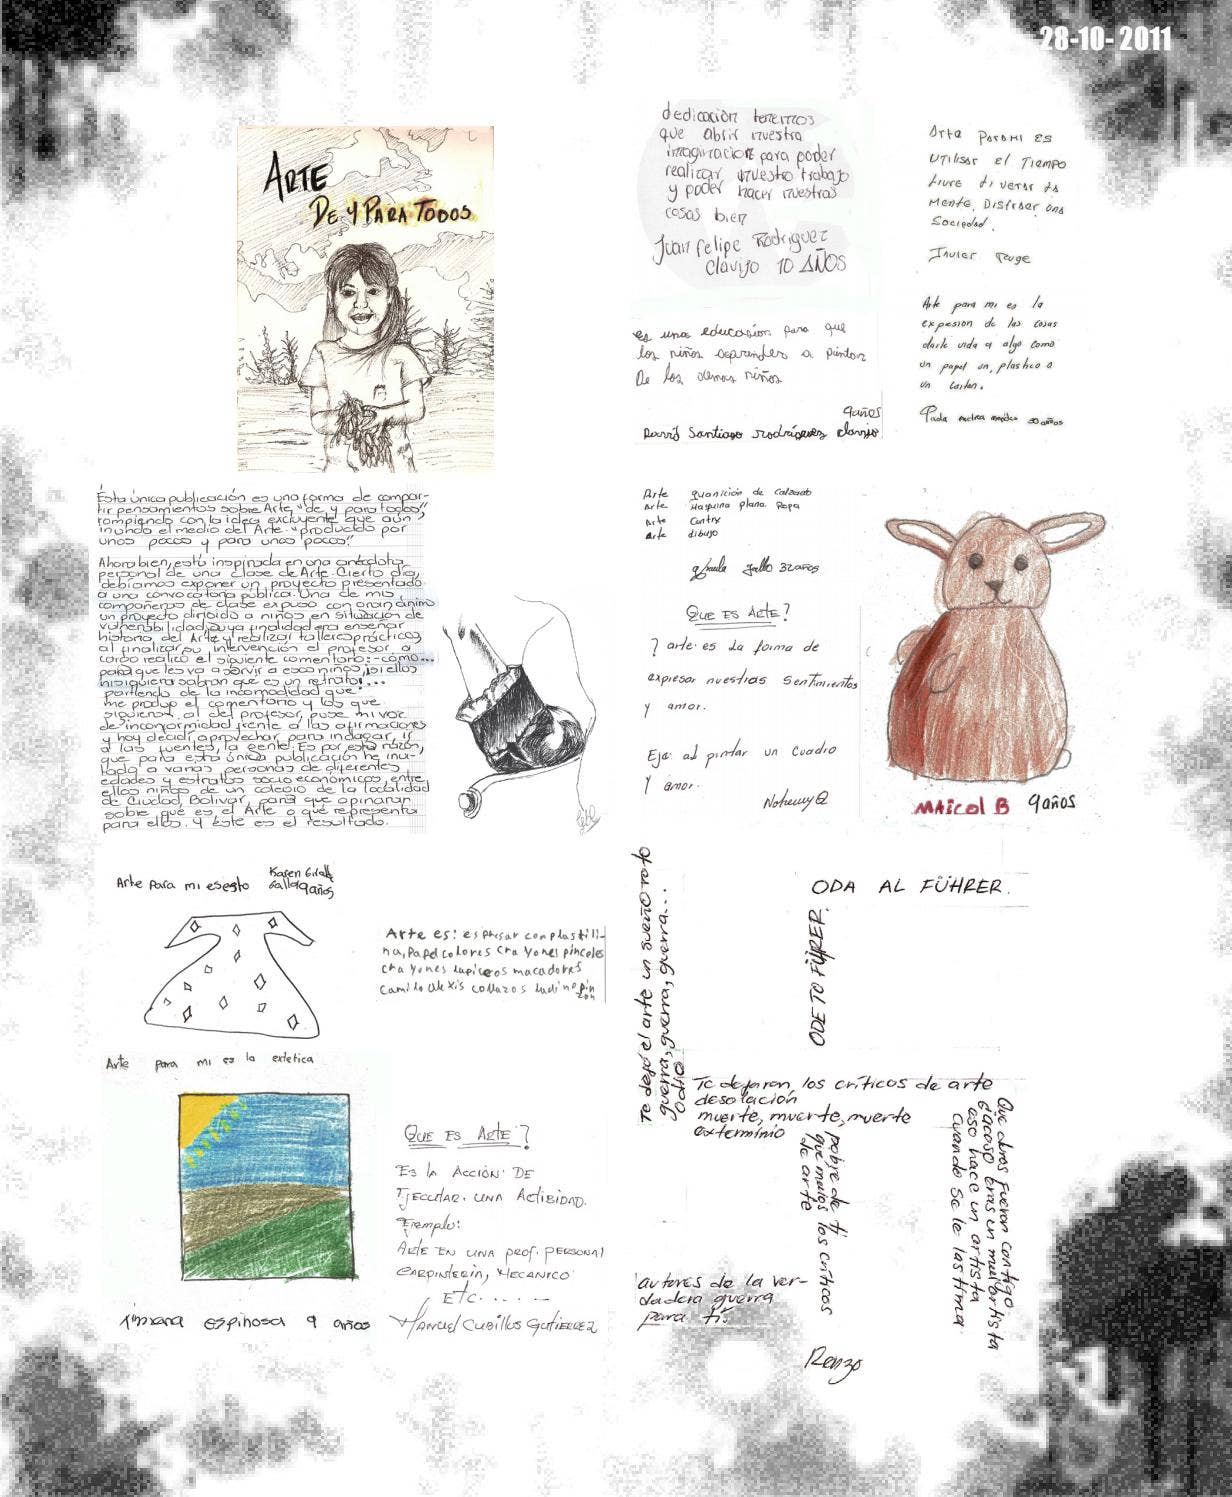 28-10- 2011
ARTE
DE Y PARA TODOS
dedicación tenemos
que abrir nuestra
imaginacion para poder
realizar nuestro trabajo
y poder hacer nuestras
cosas bien
Juan Felipe Rodriguez
Clavijo 10 AÑOS
Arte PARA MI ES
UTILISAR el TIEMPO
LIVRE
Mente,
Sociedad.
es una educasion para que
los niños aprendes a pintar
De los demas niños
9años
Santiago Rodriguez Clavijo
Arte para mi es la
expresion de las cosas
darle vida a algo como
un papel un, plastico o
un carton.
Esta única publicación es una forma de compar-
tir pensamientos sobre Arte "de y para todos",
rompiendo con la idea excluyente que aún
inunda el medio del Arte "producido por
unos pocos y para unos pocos".
Ahora bien, está inspirada en una anécdota
personal de una clase de Arte. Cierto día,
debíamos exponer un proyecto presentado
a una convocatoria pública. Una de mis
compañeras de clase expuso con gran ánimo
un proyecto dirigido a niños en situación de
vulnerabilidad, cuya finalidad era enseñar
historia del Arte y realizar talleres prácticos,
al finalizar su intervención el profesor a
cargo realizó el siguiente comentario: -cómo...
para que les va a servir a esos niños, ¡si ellos
ni siquiera sabran que es un retrato!...
partiendo de la incomodidad que
me produjo el comentario y los que
siguieron al del profesor, puse mi voz
de inconformidad frente a las afirmaciones
y hoy decidí aprovechar para indagar, ir
a las fuentes, la gente. Es por esta razón,
que para esta única publicación he invi-
tado a varias personas de diferentes
edades y estratos socio económicos, entre
ellos niños de un colegio de la localidad
de Ciudad Bolívar, para que opinaran
sobre qué es el Arte o qué representa
para ellos. Y éste es el resultado.
Arte guanición de calzado
Arte Maquina plana Ropa
Arte
Arte dibujo
Gallo 32años
QUE ES ARTE?
? arte es la forma de
expresar nuestras sentimientos
y amor.
Eje: al pintar un cuadro
y amor.
MAICOL B 9años
Arte para mi es esto
Karen
Gallo 9años
Arte es: espresar con plastili-
na, Papel colores crayones pinceles
crayones lapiceros macadores
Camilo Alexis collazos
Arte para mi es la extetica
Ximena espinosa 9 años
QUE ES ARTE?
ES LA ACCIÓN DE
EJECUTAR UNA ACTIBIDAD.
Ejemplo:
ARTE EN UNA PROF. PERSONAL
CARPINTERIA, MECANICO
ETC......
MANUEL CUBILLOS GUTIERREZ
ODA AL FÜHRER.
ODE TO FÜRER.
Te dejó el arte un sueño roto
guerra, guerra, guerra...
Odio
Te dejaron los críticos de arte
desolación
muerte, muerte, muerte
exterminio
pobre de ti
que malos los críticos
de arte
Que duros fueron contigo
o acaso eras un mal artista
eso hace un artista
cuando se le lastima
autores de la ver-
dadera guerra
para ti.
Renzo